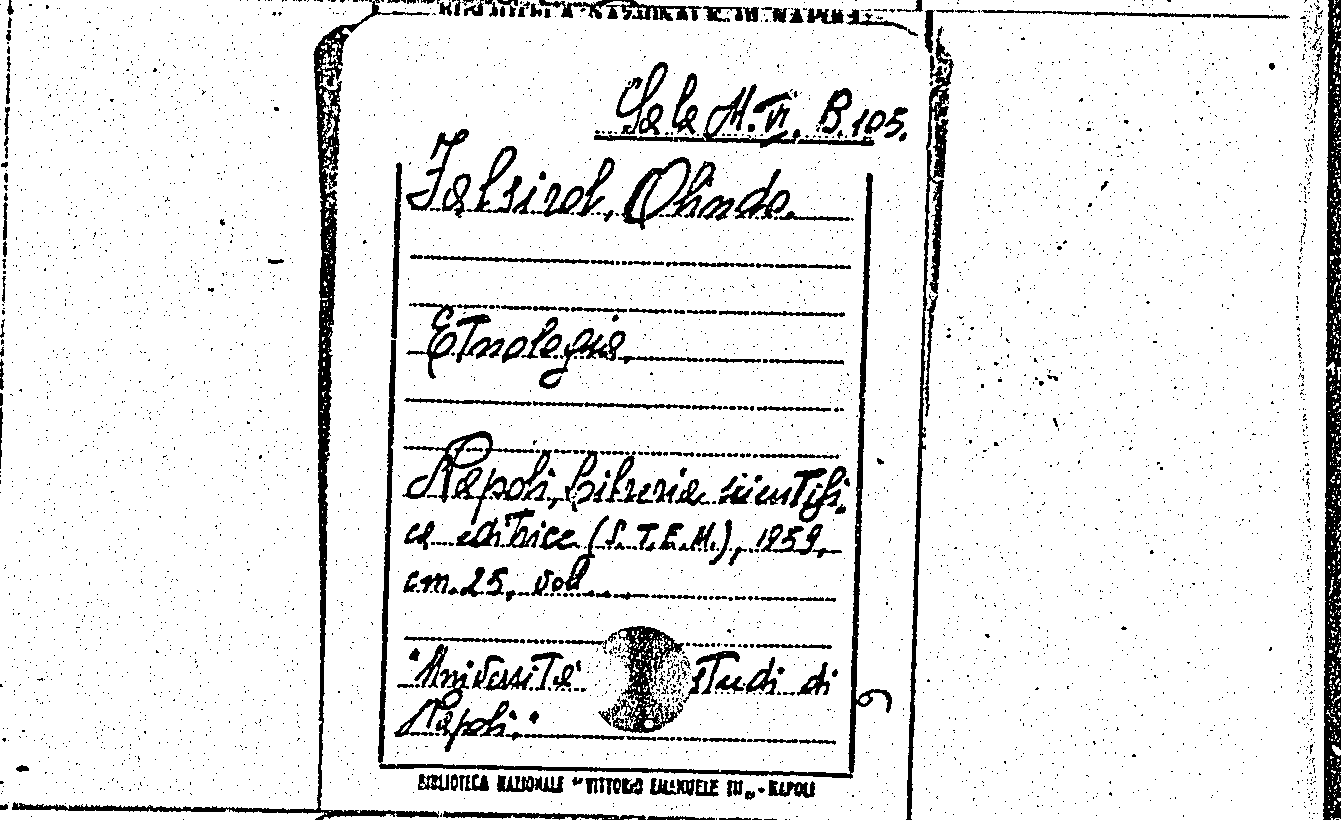 BIBLIOTECA NAZIONALE DI NAPOLI
Sala M. VI. B. 105.
Falsirol, Olindo.
Etnologia.
Napoli, Libreria scientifi-
ca editrice (S.T.E.M.), 1959,
cm. 25, voll. ...
"Università studi di
Napoli."
BIBLIOTECA NAZIONALE "VITTORIO EMANUELE III" - NAPOLI